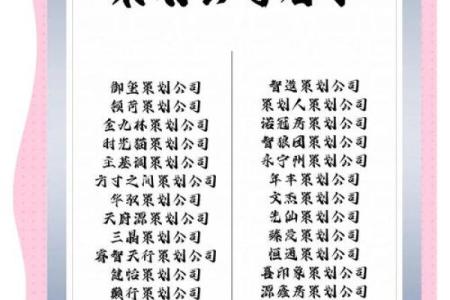 策划公司名字
御玺策划公司
领荷策划公司
金九林策划公司
时光猫策划公司
主基调策划公司
方寸之间策划公司
华驭策划公司
天府源策划公司
三晶策划公司
睿智天行策划公司
健怡策划公司
颢行策划公司
智造策划公司
策划人策划公司
诺冠房策划公司
智狼团策划公司
永宁州策划公司
年丰策划公司
文杰策划公司
光仙策划公司
臻爱策划公司
恒通策划公司
喜印象策划公司
源盛房策划公司